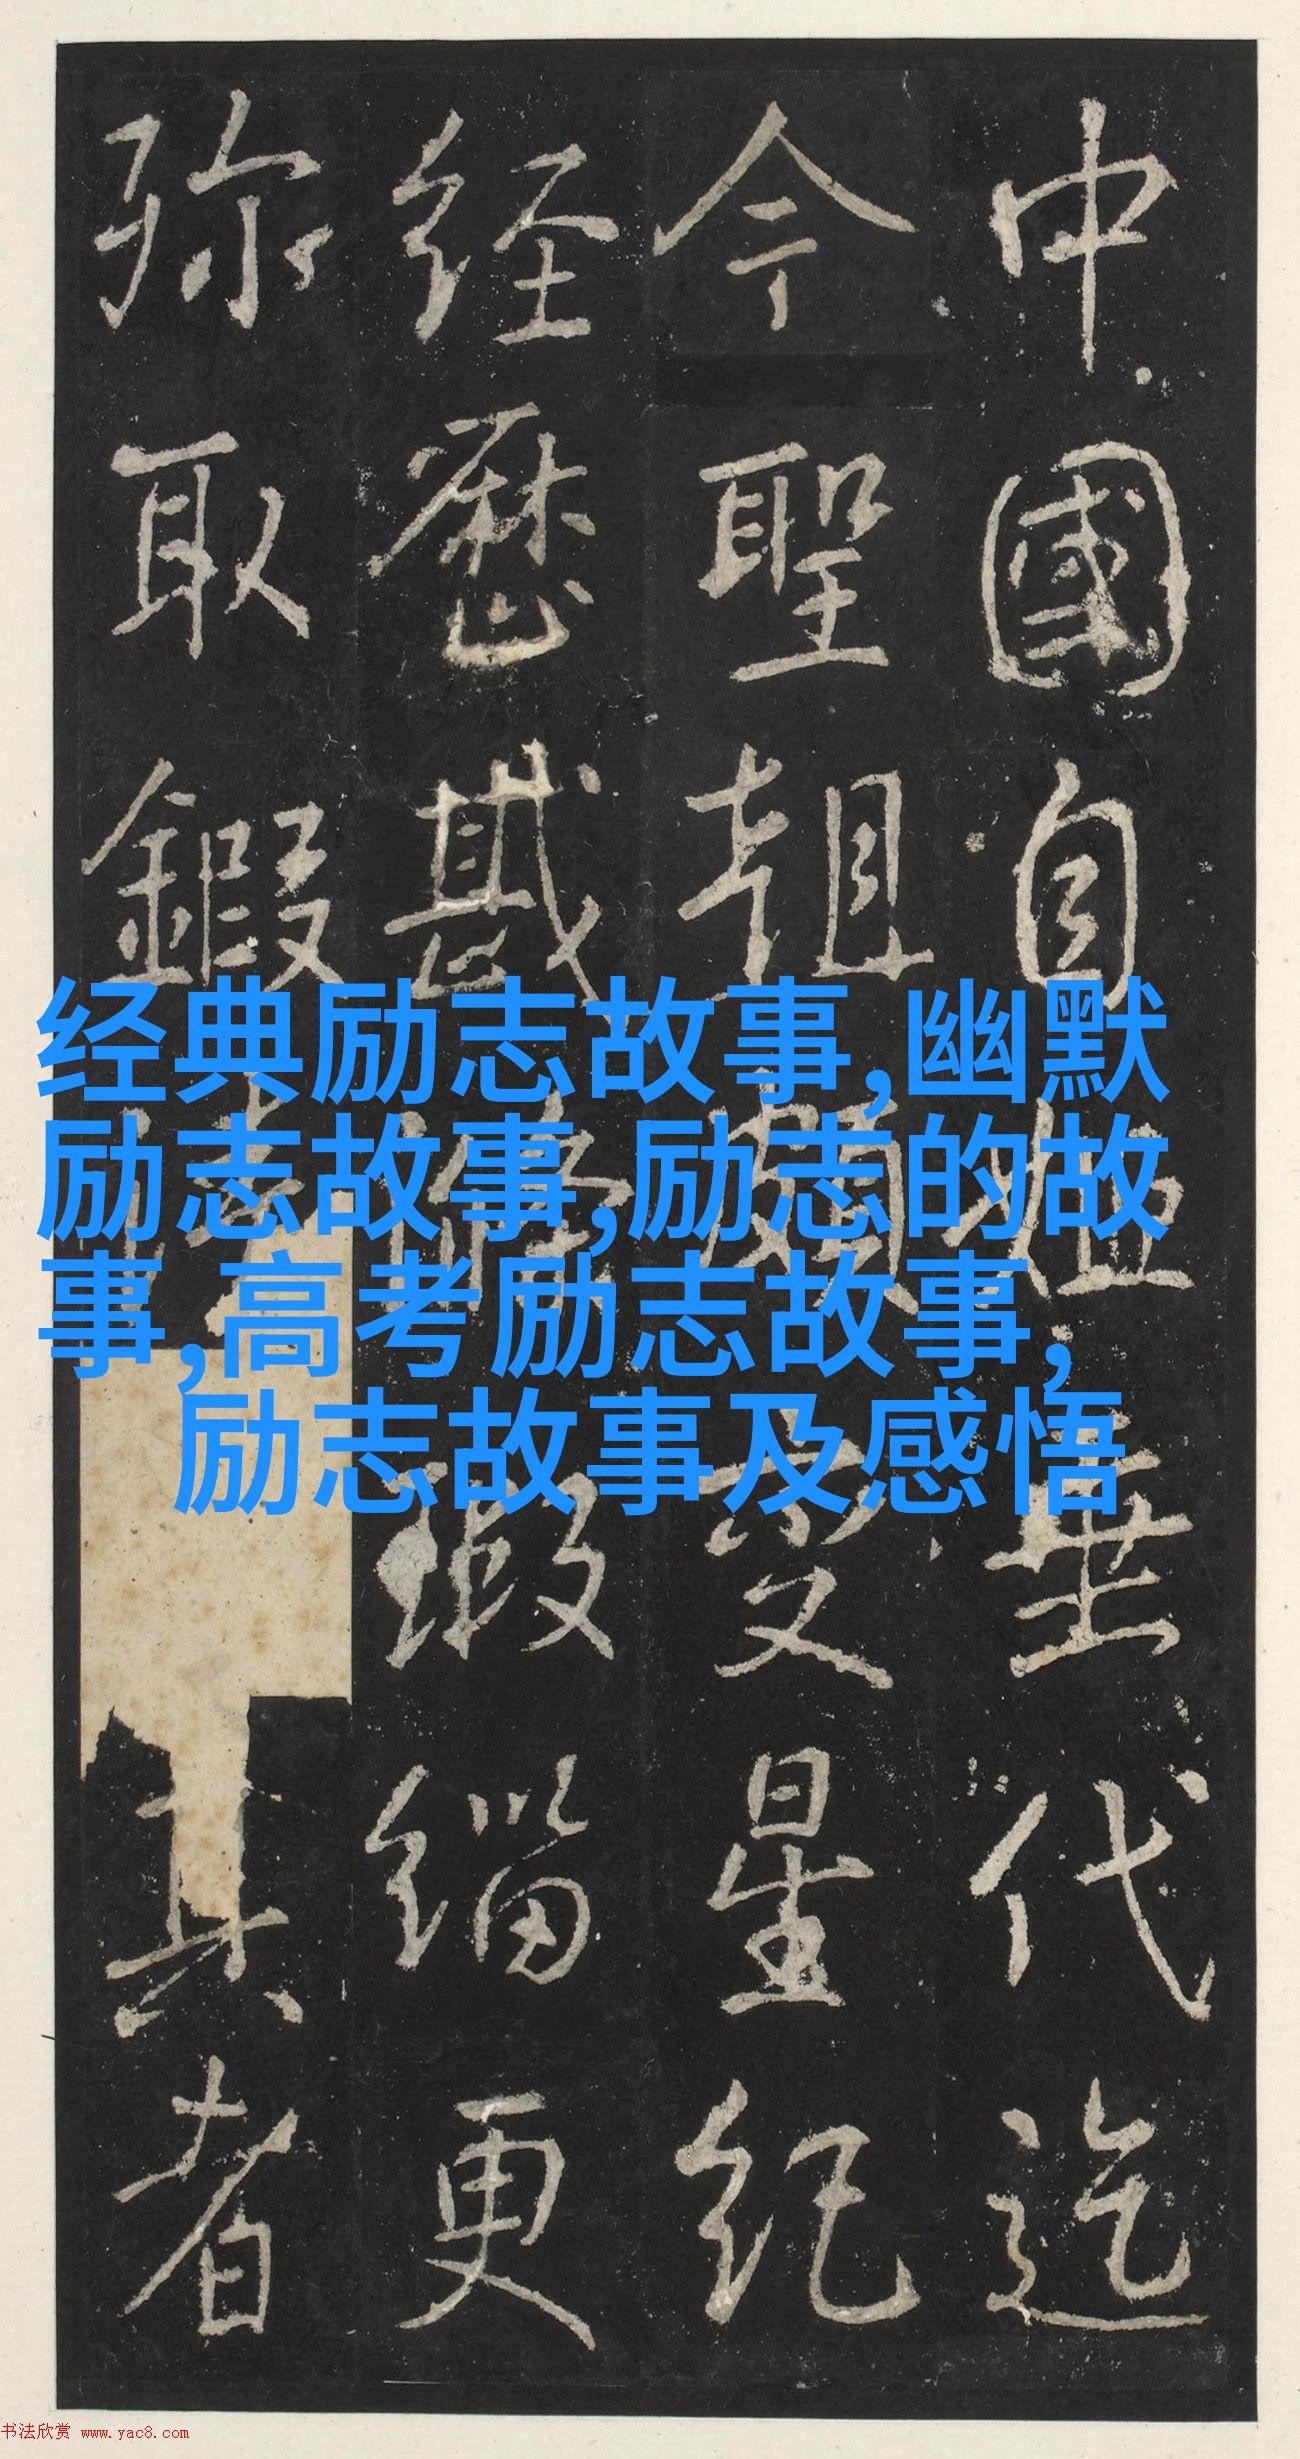 中國自代迄
今聖朝星紀
经歷瑕緇更
弥取真者
经典励志故事,幽默
励志故事,励志的故
事,高考励志故事,
励志故事及感悟
书法欣赏 www.yac8.com